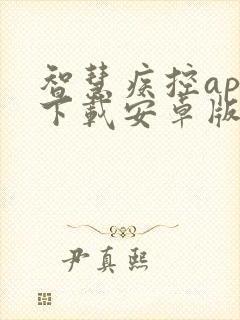 智慧疾控ap
下载安卓版
尹真熙